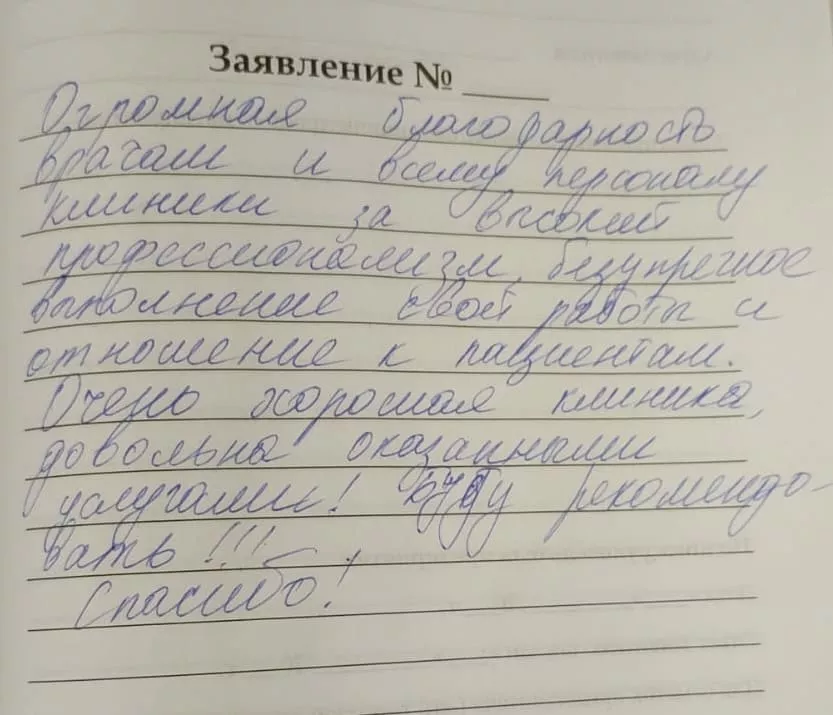 Заявление № ____
Огромная благодарность
врачам и всему персоналу
клиники за высокий
профессионализм, безупречное
выполнение своей работы и
отношение к пациентам.
Очень хорошая клиника,
довольна оказанными
услугами! Буду рекомендо-
вать!!!
Спасибо!